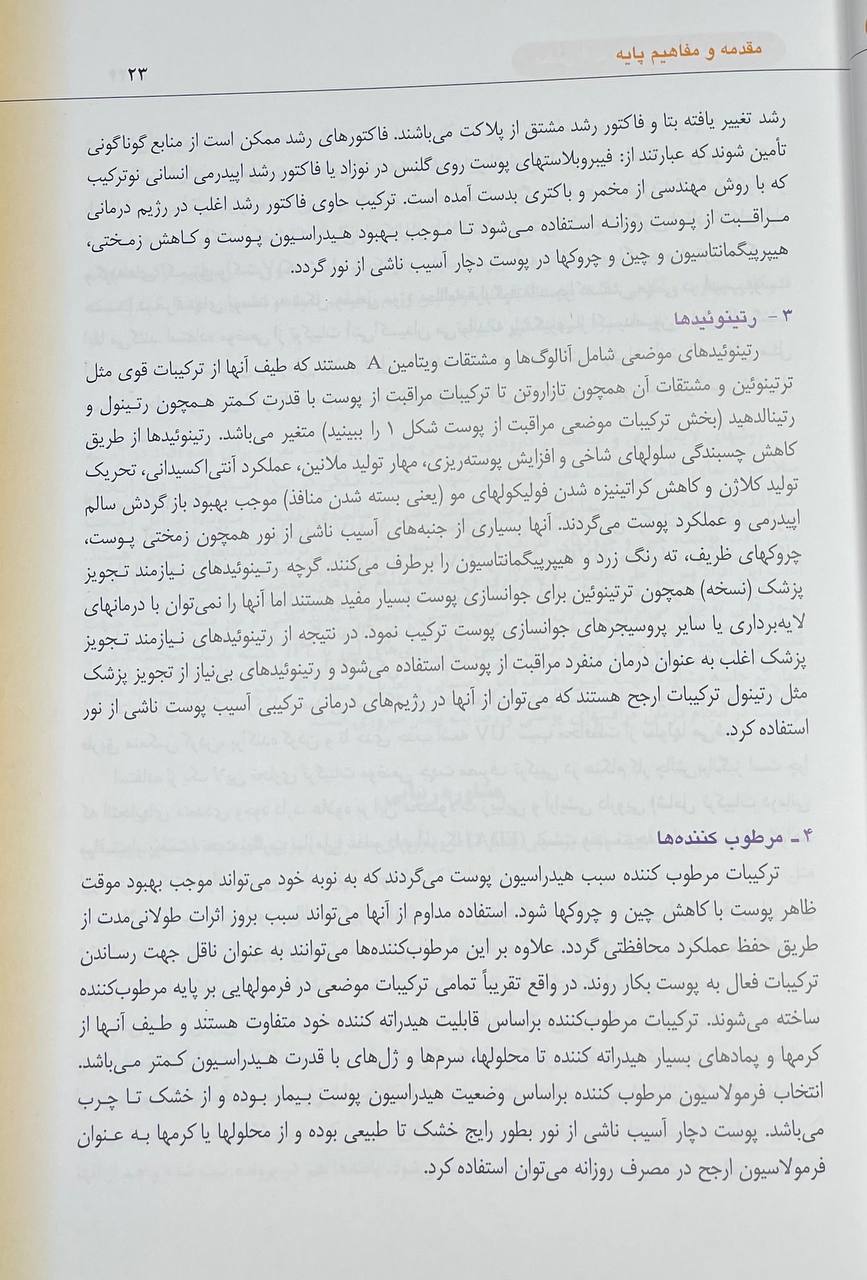 مقدمه و مفاهیم پایه
۲۳
رشد تغییر یافته بتا و فاکتور رشد مشتق از پلاکت می‌باشند. فاکتورهای رشد ممکن است از منابع گوناگونی
تأمین شوند که عبارتند از: فیبروبلاستهای پوست روی گلنس در نوزاد یا فاکتور رشد اپیدرمی انسانی نوترکیب
که با روش مهندسی از مخمر و باکتری بدست آمده است. ترکیب حاوی فاکتور رشد اغلب در رژیم درمانی
مراقبت از پوست روزانه استفاده می‌شود تا موجب بهبود هیدراسیون پوست و کاهش زمختی،
هیپرپیگمانتاسیون و چین و چروکها در پوست دچار آسیب ناشی از نور گردد.
۳ - رتینوئیدها
رتینوئیدهای موضعی شامل آنالوگ‌ها و مشتقات ویتامین A هستند که طیف آنها از ترکیبات قوی مثل
ترتینوئین و مشتقات آن همچون تازاروتن تا ترکیبات مراقبت از پوست با قدرت کمتر همچون رتینول و
رتینالدهید (بخش ترکیبات موضعی مراقبت از پوست شکل ۱ را ببینید) متغیر می‌باشد. رتینوئیدها از طریق
کاهش چسبندگی سلولهای شاخی و افزایش پوسته‌ریزی، مهار تولید ملانین، عملکرد آنتی‌اکسیدانی، تحریک
تولید کلاژن و کاهش کراتینیزه شدن فولیکولهای مو (یعنی بسته شدن منافذ) موجب بهبود بازگردش سالم
اپیدرمی و عملکرد پوست می‌گردند. آنها بسیاری از جنبه‌های آسیب ناشی از نور همچون زمختی پوست،
چروکهای ظریف، ته رنگ زرد و هیپرپیگمانتاسیون را برطرف می‌کنند. گرچه رتینوئیدهای نیازمند تجویز
پزشک (نسخه) همچون ترتینوئین برای جوانسازی پوست بسیار مفید هستند اما آنها را نمی‌توان با درمانهای
لایه‌برداری یا سایر پروسیجرهای جوانسازی پوست ترکیب نمود. در نتیجه از رتینوئیدهای نیازمند تجویز
پزشک اغلب به عنوان درمان منفرد مراقبت از پوست استفاده می‌شود و رتینوئیدهای بی‌نیاز از تجویز پزشک
مثل رتینول ترکیبات ارجح هستند که می‌توان از آنها در رژیم‌های درمانی ترکیبی آسیب پوست ناشی از نور
استفاده کرد.
۴ - مرطوب کننده‌ها
ترکیبات مرطوب کننده سبب هیدراسیون پوست می‌گردند که به نوبه خود می‌تواند موجب بهبود موقت
ظاهر پوست با کاهش چین و چروکها شود. استفاده مداوم از آنها می‌تواند سبب بروز اثرات طولانی‌مدت از
طریق حفظ عملکرد محافظتی گردد. علاوه بر این مرطوب‌کننده‌ها می‌توانند به عنوان ناقل جهت رساندن
ترکیبات فعال به پوست بکار روند. در واقع تقریباً تمامی ترکیبات موضعی در فرمولهایی بر پایه مرطوب‌کننده
ساخته می‌شوند. ترکیبات مرطوب‌کننده براساس قابلیت هیدراته کننده خود متفاوت هستند و طیف آنها از
کرمها و پمادهای بسیار هیدراته کننده تا محلولها، سرم‌ها و ژل‌های با قدرت هیدراسیون کمتر می‌باشد.
انتخاب فرمولاسیون مرطوب کننده براساس وضعیت هیدراسیون پوست بیمار بوده و از خشک تا چرب
می‌باشد. پوست دچار آسیب ناشی از نور بطور رایج خشک تا طبیعی بوده و از محلولها یا کرمها به عنوان
فرمولاسیون ارجح در مصرف روزانه می‌توان استفاده کرد.